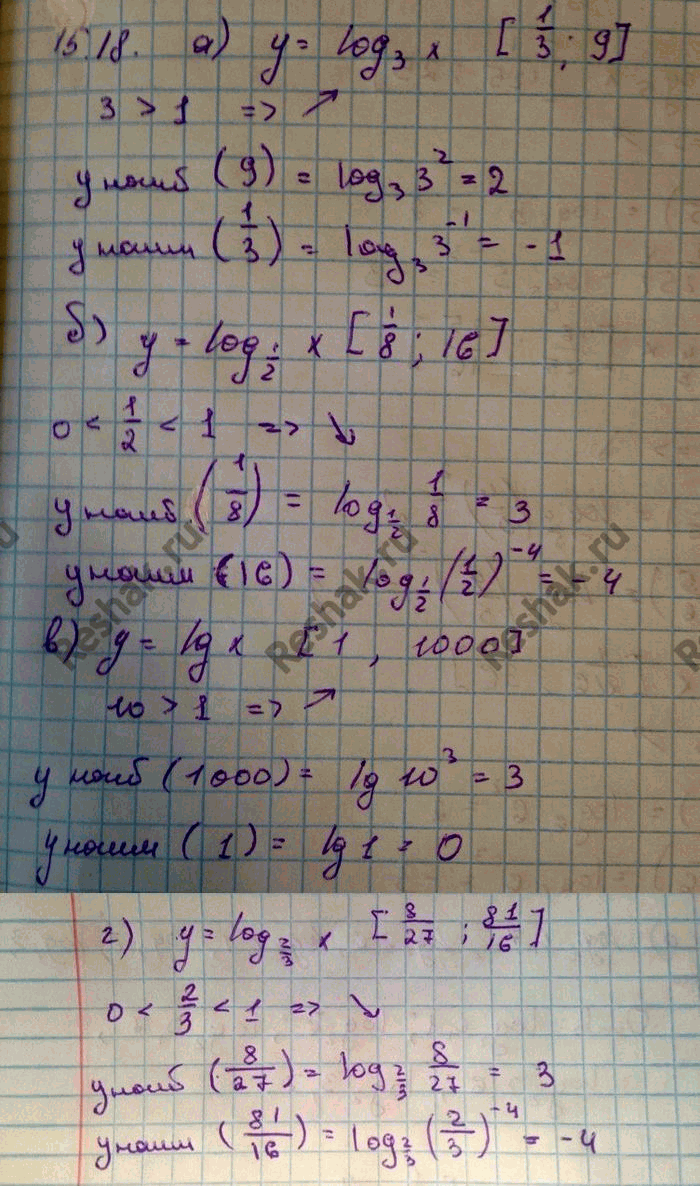 15.18. а) y = log₃ x [1/3; 9]
3 > 1 => ↗
y наиб (9) = log₃ 3² = 2
y наим (1/3) = log₃ 3⁻¹ = -1
б) y = log_{1/2} x [1/8; 16]
0 < 1/2 < 1 => ↘
y наиб (1/8) = log_{1/2} 1/8 = 3
y наим (16) = log_{1/2} (1/2)⁻⁴ = -4
в) y = lg x [1, 1000]
10 > 1 => ↗
y наиб (1000) = lg 10³ = 3
y наим (1) = lg 1 = 0
г) y = log_{2/3} x [8/27; 81/16]
0 < 2/3 < 1 => ↘
y наиб (8/27) = log_{2/3} 8/27 = 3
y наим (81/16) = log_{2/3} (2/3)⁻⁴ = -4
Reshak.ru
Reshak.ru
Reshak.ru